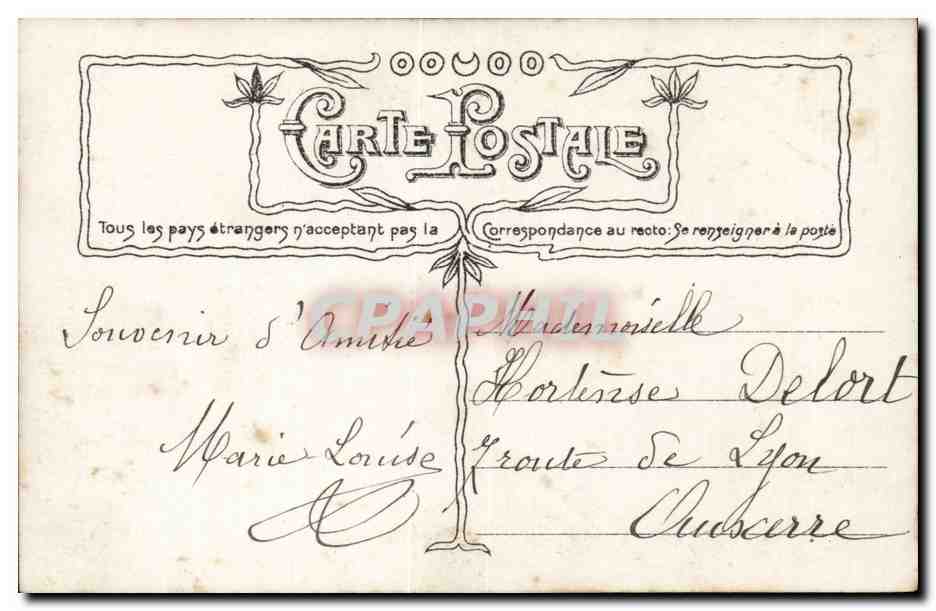 CARTE POSTALE
Tous les pays étrangers n'acceptant pas la Correspondance au recto: Se renseigner à la poste
CPAPHIL
Souvenir d'Amitié
Marie Louise
Mademoiselle
Hortense Delort
7 route de Lyon
Auxerre